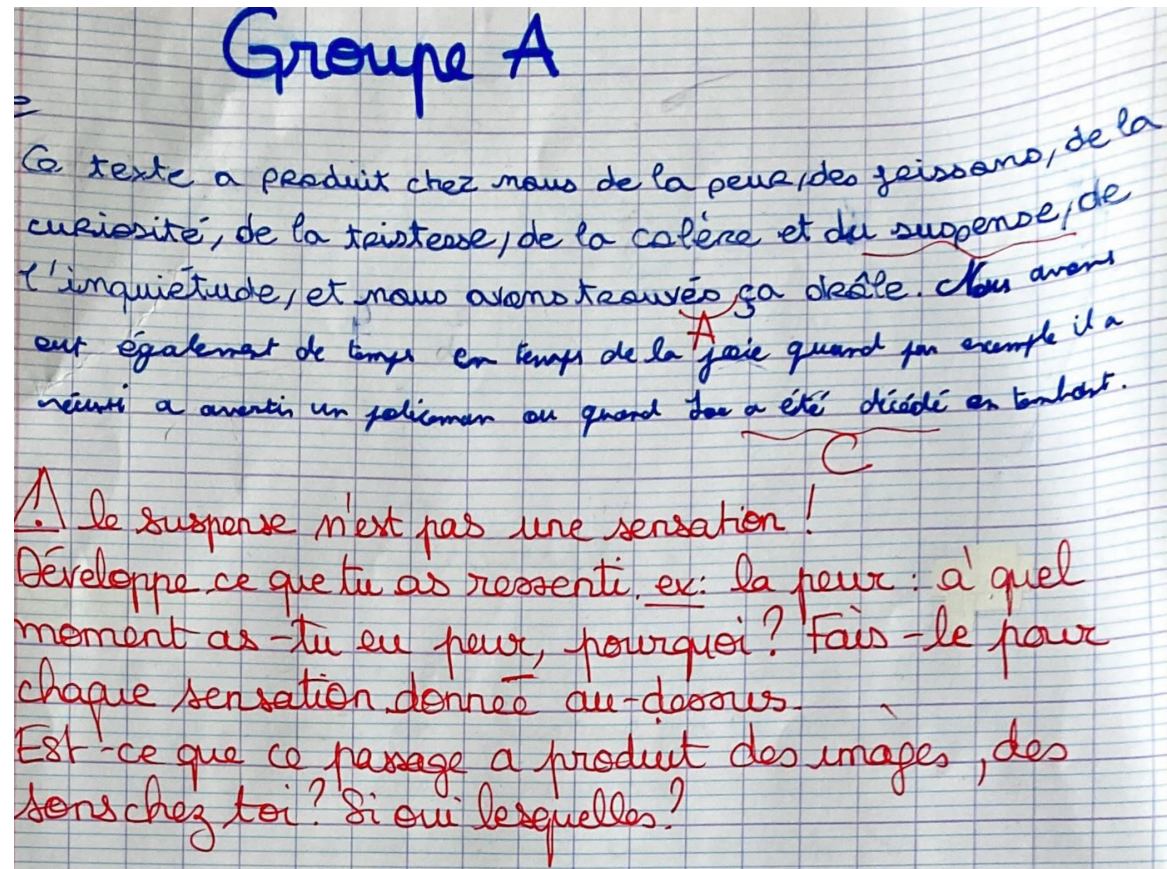 Groupe A
Ce texte a produit chez nous de la peur, des frissons, de la
curiosité, de la tristesse, de la colére et du suspense, de
l'inquiétude, et nous avons trouvés ça drôle. Nous avons
eut également de temps en temps de la joie quand par exemple il a
réussi a avertir un policeman ou quand Joe a été décédé en tombant.
A
C
⚠ le suspense n'est pas une sensation !
Développe ce que tu as ressenti. ex: la peur : à quel
moment as-tu eu peur, pourquoi ? Fais-le pour
chaque sensation donnée au-dessus.
Est-ce que ce passage a produit des images, des
sons chez toi ? Si oui lesquelles ?